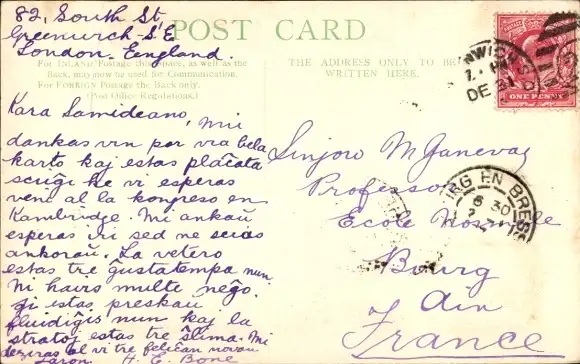 82, South St,
Greenwich S.E
London, England
POST CARD
For INLAND Postage this space, as well as the
Back, may now be used for Communication.
For FOREIGN Postage the Back only.
(Post Office Regulations.)
THE ADDRESS ONLY TO BE
WRITTEN HERE.
ONE PENNY
DE 31
Kara Samideano, Mi
dankas vin por via bela
karto kaj estas plaĉata
sciiĝi ke vi esperas
veni al la kongreso en
Kambridge. Mi ankaŭ
esperas iri sed ne scias
ankoraŭ. La vetero
estas tre ĝustatempa nun.
Ni havis multe neĝo.
ĝi estas preskaŭ
fluidiĝis nun kaj la
stratoj estas tre ŝlima. Mi
deziras al vi tre feliĉan novan
Jaron. H. E. Bone
Sinjoro M
Professor
Ecole Normale
Bourg
Ain
France
RG EN BRESS
6 30